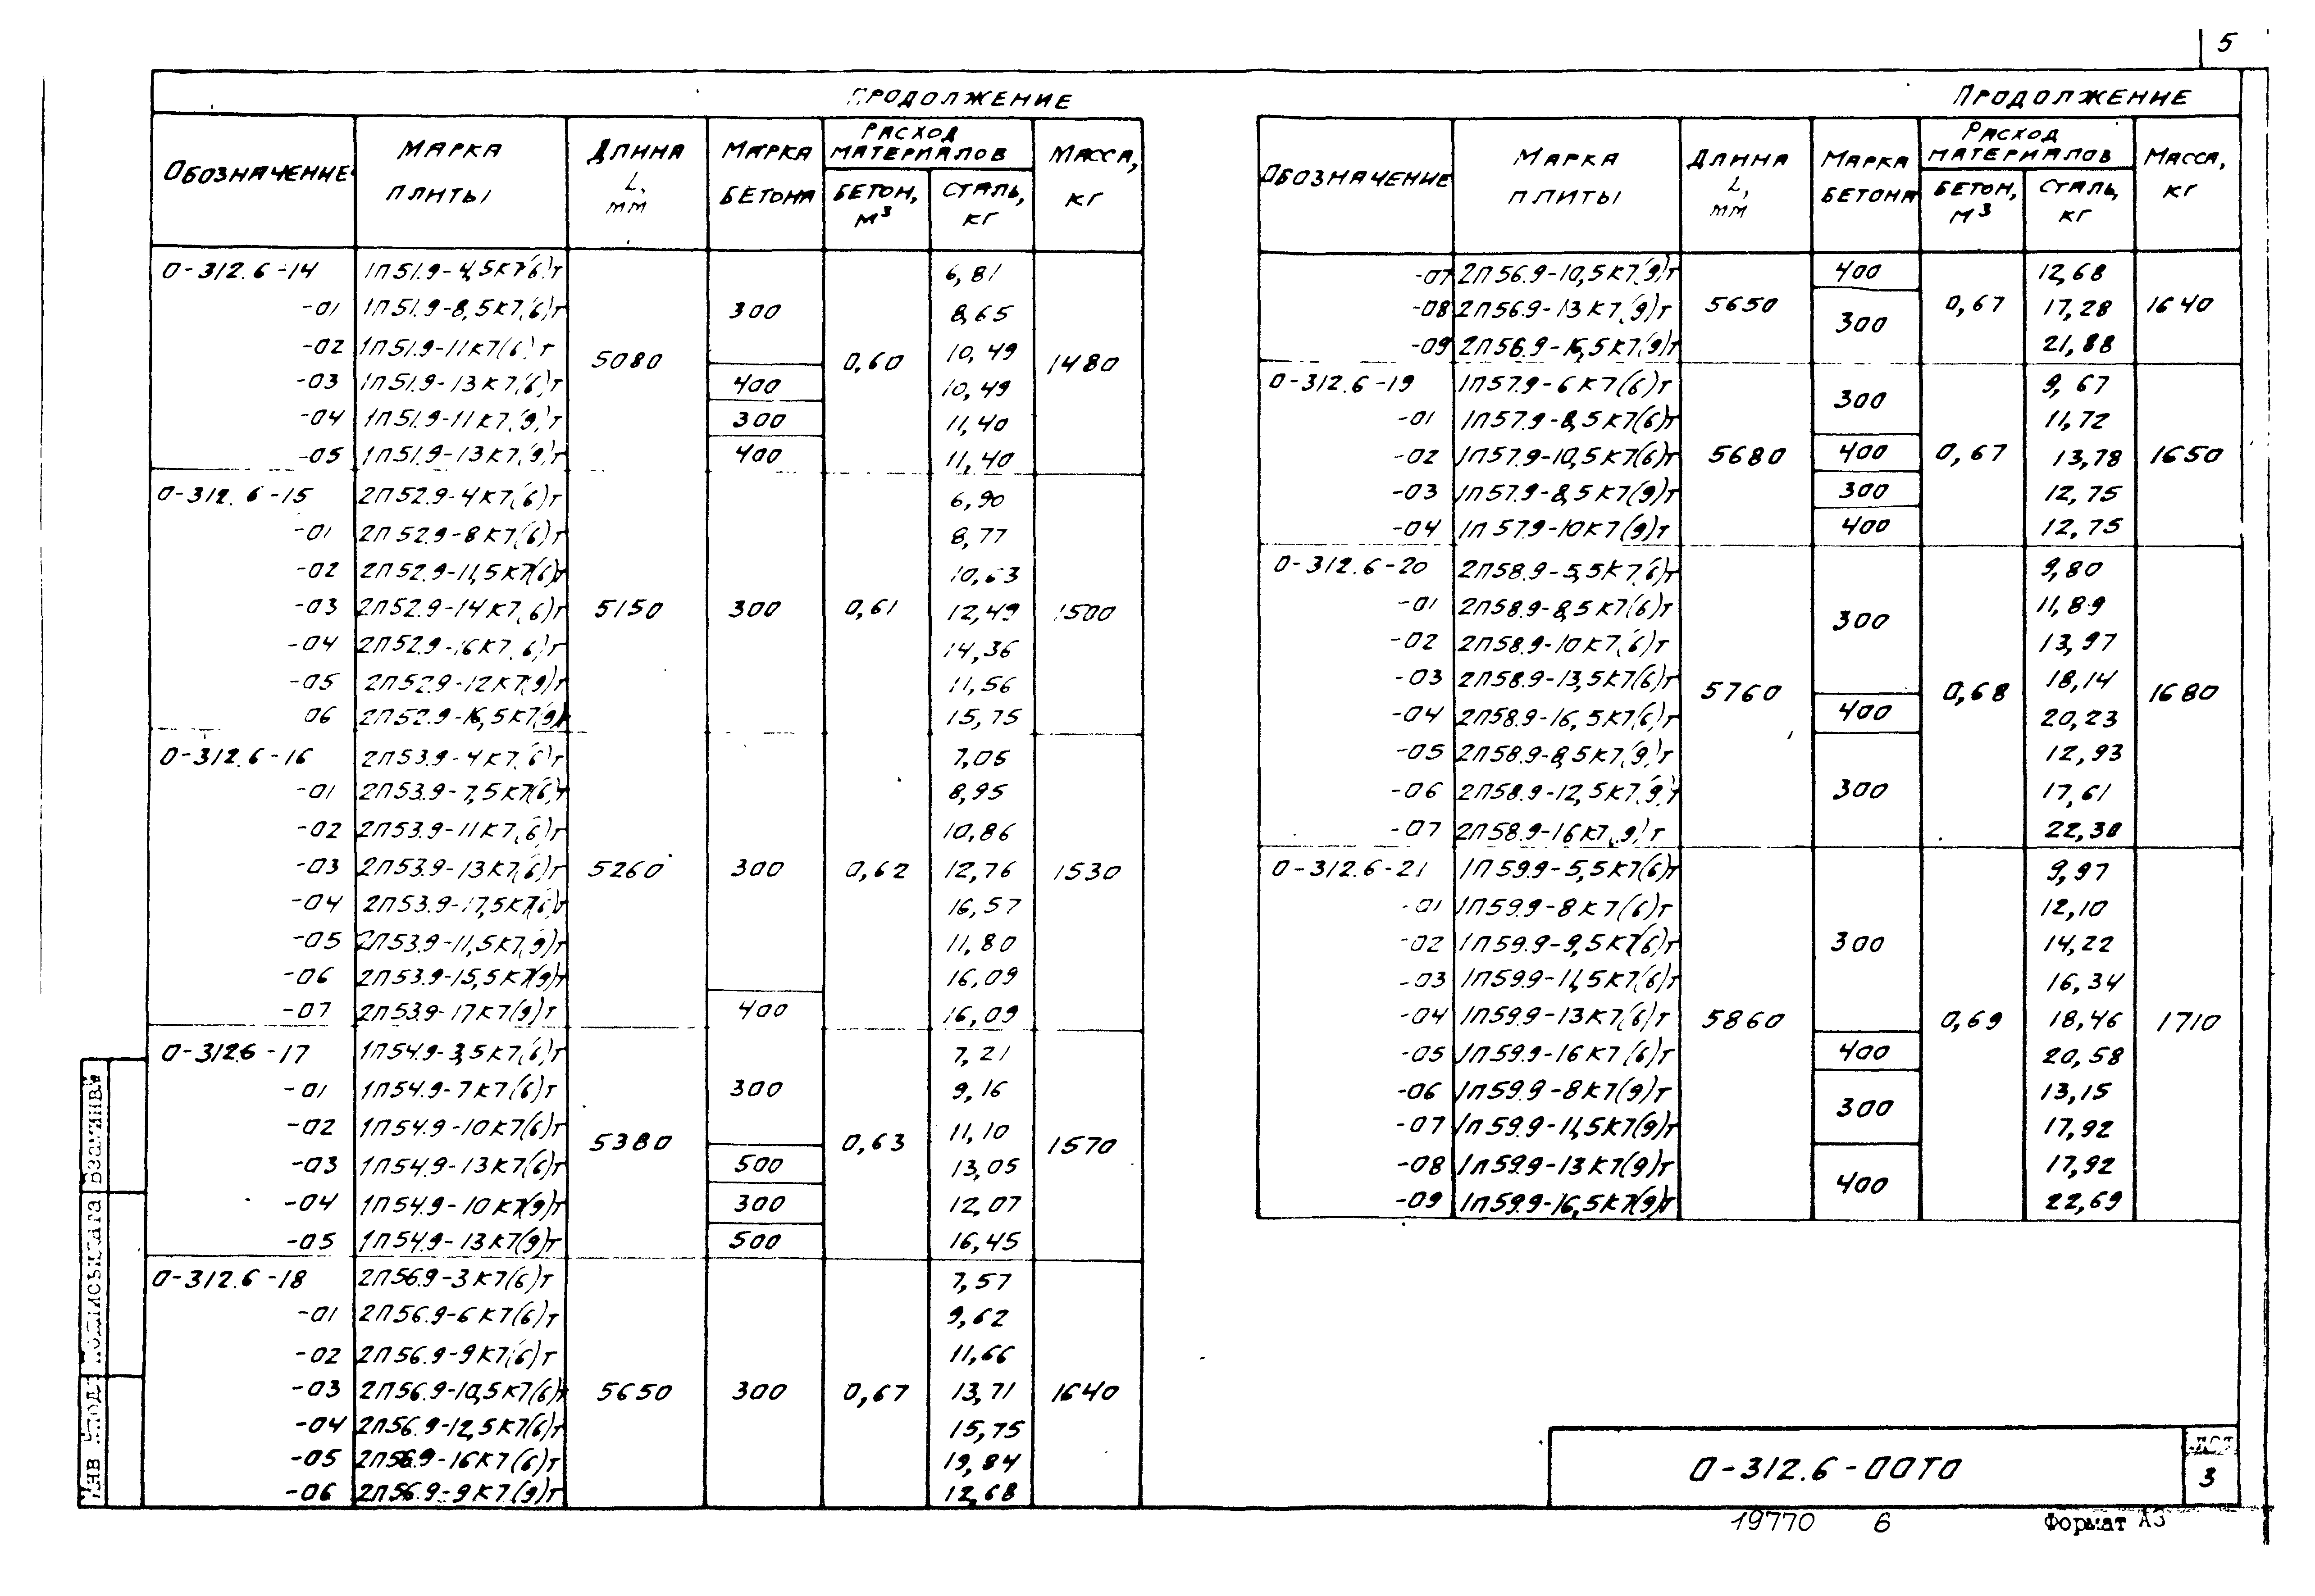 5
ПРОДОЛЖЕНИЕ
ОБОЗНАЧЕНИЕ МАРКА ПЛИТЫ ДЛИНА L, мм МАРКА БЕТОНА РАСХОД МАТЕРИАЛОВ БЕТОН, м³ СТАЛЬ, кг МАССА, кг
0-312.6-14 1П51.9-4,5К7(6)т 6,81
-01 1П51.9-8,5К7(6)т 300 8,65
-02 1П51.9-11К7(6)т 10,49
5080 0,60 1480
-03 1П51.9-13К7(6)т 400 10,49
-04 1П51.9-11К7(9)т 300 11,40
-05 1П51.9-13К7(9)т 400 11,40
0-312.6-15 2П52.9-4К7(6)т 6,90
-01 2П52.9-8К7(6)т 8,77
-02 2П52.9-11,5К7(6)т 10,63
-03 2П52.9-14К7(6)т 5150 300 0,61 12,49 1500
-04 2П52.9-16К7(6)т 14,36
-05 2П52.9-12К7(9)т 11,56
06 2П52.9-16,5К7(9)т 15,75
0-312.6-16 2П53.9-4К7(6)т 7,05
-01 2П53.9-7,5К7(6)т 8,95
-02 2П53.9-11К7(6)т 10,86
-03 2П53.9-13К7(6)т 5260 300 0,62 12,76 1530
-04 2П53.9-17,5К7(6)т 16,57
-05 2П53.9-11,5К7(9)т 11,80
-06 2П53.9-15,5К7(9)т 16,09
-07 2П53.9-17К7(9)т 400 16,09
0-3126-17 1П54.9-3,5К7(6)т 7,21
-01 1П54.9-7К7(6)т 300 9,16
-02 1П54.9-10К7(6)т 11,10
5380 0,63 1570
-03 1П54.9-13К7(6)т 500 13,05
-04 1П54.9-10К7(9)т 300 12,07
-05 1П54.9-13К7(9)т 500 16,45
0-312.6-18 2П56.9-3К7(6)т 7,57
-01 2П56.9-6К7(6)т 9,62
-02 2П56.9-9К7(6)т 11,66
-03 2П56.9-10,5К7(6)т 5650 300 0,67 13,71 1640
-04 2П56.9-12,5К7(6)т 15,75
-05 2П56.9-16К7(6)т 19,84
-06 2П56.9-9К7(9)т 12,68
ПРОДОЛЖЕНИЕ
ОБОЗНАЧЕНИЕ МАРКА ПЛИТЫ ДЛИНА L, мм МАРКА БЕТОНА РАСХОД МАТЕРИАЛОВ БЕТОН, м³ СТАЛЬ, кг МАССА, кг
-07 2П56.9-10,5К7(9)т 400 12,68
-08 2П56.9-13К7(9)т 5650 300 0,67 17,28 1640
-09 2П56.9-16,5К7(9)т 21,88
0-312.6-19 1П57.9-6К7(6)т 300 9,67
-01 1П57.9-8,5К7(6)т 11,72
-02 1П57.9-10,5К7(6)т 5680 400 0,67 13,78 1650
-03 1П57.9-8,5К7(9)т 300 12,75
-04 1П57.9-10К7(9)т 400 12,75
0-312.6-20 2П58.9-5,5К7(6)т 9,80
-01 2П58.9-8,5К7(6)т 300 11,89
-02 2П58.9-10К7(6)т 13,97
-03 2П58.9-13,5К7(6)т 5760 0,68 18,14 1680
-04 2П58.9-16,5К7(6)т 400 20,23
-05 2П58.9-8,5К7(9)т 12,93
-06 2П58.9-12,5К7(9)т 300 17,61
-07 2П58.9-16К7(9)т 22,30
0-312.6-21 1П59.9-5,5К7(6)т 9,97
-01 1П59.9-8К7(6)т 12,10
-02 1П59.9-9,5К7(6)т 300 14,22
-03 1П59.9-11,5К7(6)т 16,34
-04 1П59.9-13К7(6)т 5860 0,69 18,46 1710
-05 1П59.9-16К7(6)т 400 20,58
-06 1П59.9-8К7(9)т 300 13,15
-07 1П59.9-11,5К7(9)т 17,92
-08 1П59.9-13К7(9)т 400 17,92
-09 1П59.9-16,5К7(9)т 22,69
0-312.6-00ТО
3
19770 6
Формат А3